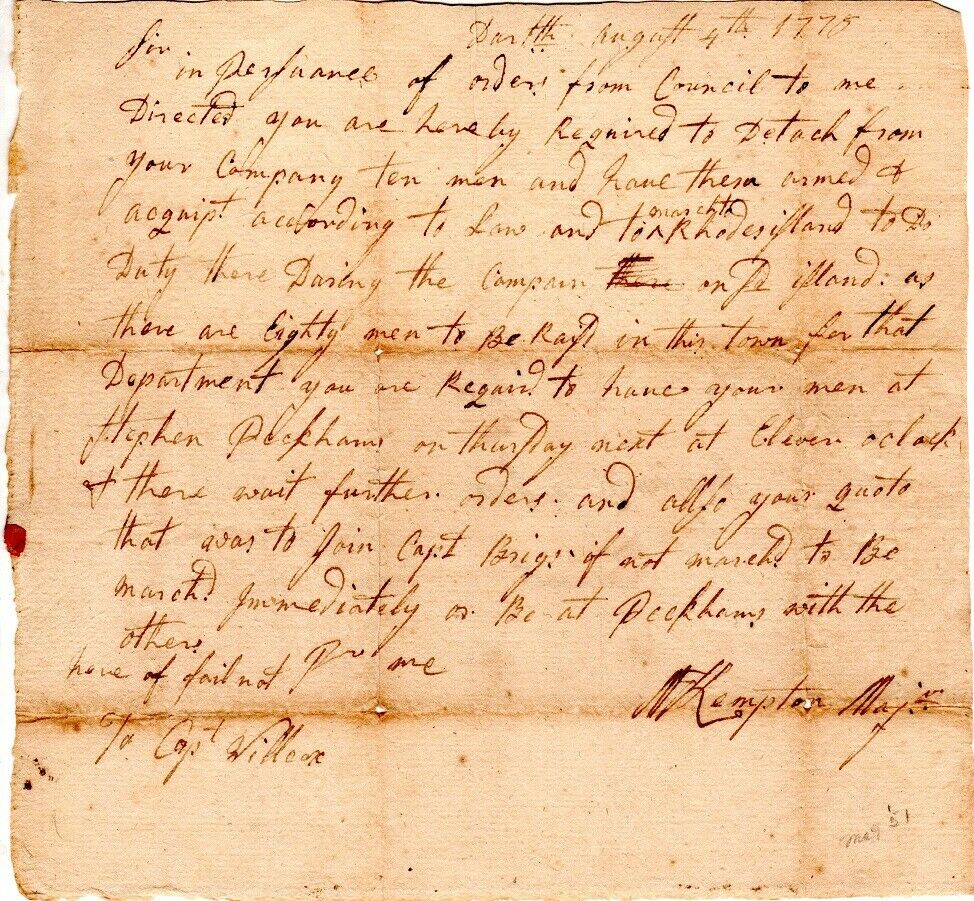 Dartth August 4th 1778
Sir
in Persuance of orders from Council to me
Directed you are hereby Required to Detach from
your Company ten men and have them armed &
acquipt according to Law and to ^ Rhodesisland to Do
march to
Duty there Daring the Compain there on Se island: as
there are Eighty men to Be Raisd in this town for that
Department you are Requird to have your men at
Stephen Peckhams on thursday next at Eleven oclock
& there wait further orders and allso your quoto
that was to Join Capt Brigs if not marchd to Be
marchd Immediately or Be at Peckhams with the
others
have of fail not Pr me
M Kempton Majr
To Capt Willcox
mad '51